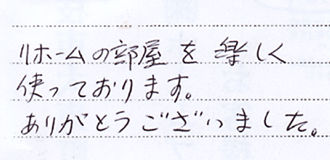 リホームの部屋を楽しく
使っております。
ありがとうございました。